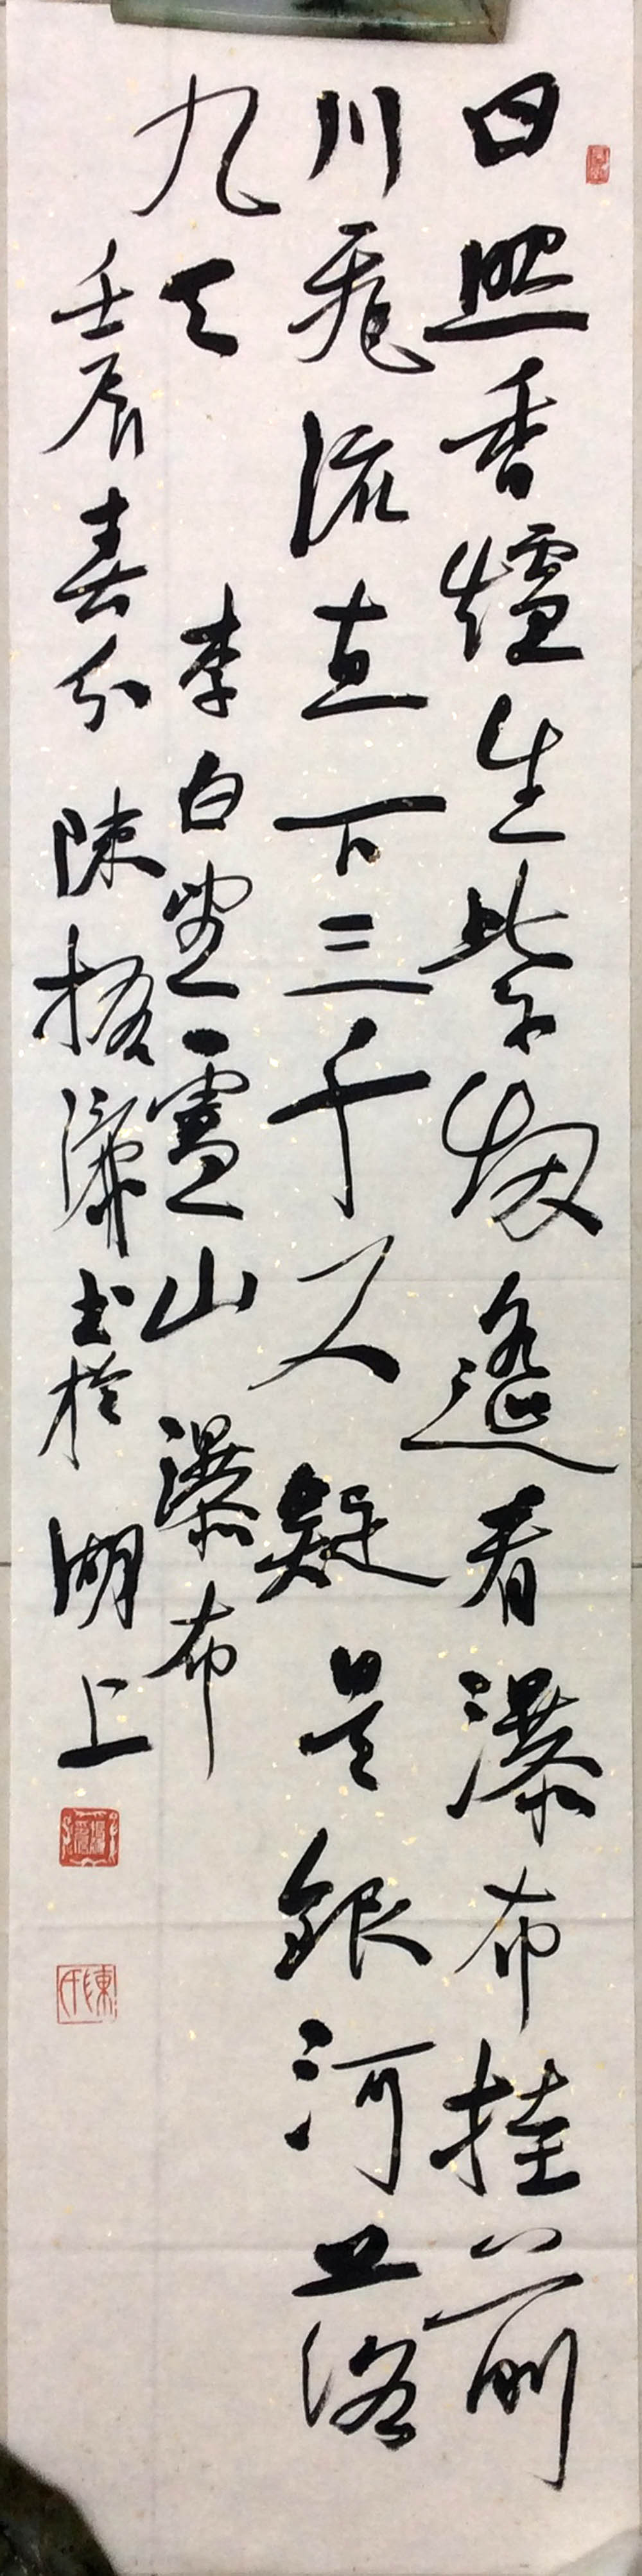 日照香爐生紫烟遙看瀑布挂前
川飛流直下三千尺疑是銀河落
九天 李白望廬山瀑布
壬辰春分 陳 書於湖上
陳氏